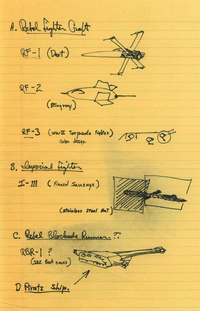 A. Rebel Fighter Craft
RF-1 (Dart)
RF-2
(Stingray)
RF-3 (WWII Torpedo Fighter)
B. Imperial Fighter
I-III (Finned Sausage)
(Stainless Steel Hat)
C. Rebel Blockade Runner ??
RBR-1 ?
(See
D. Pirate Ship.